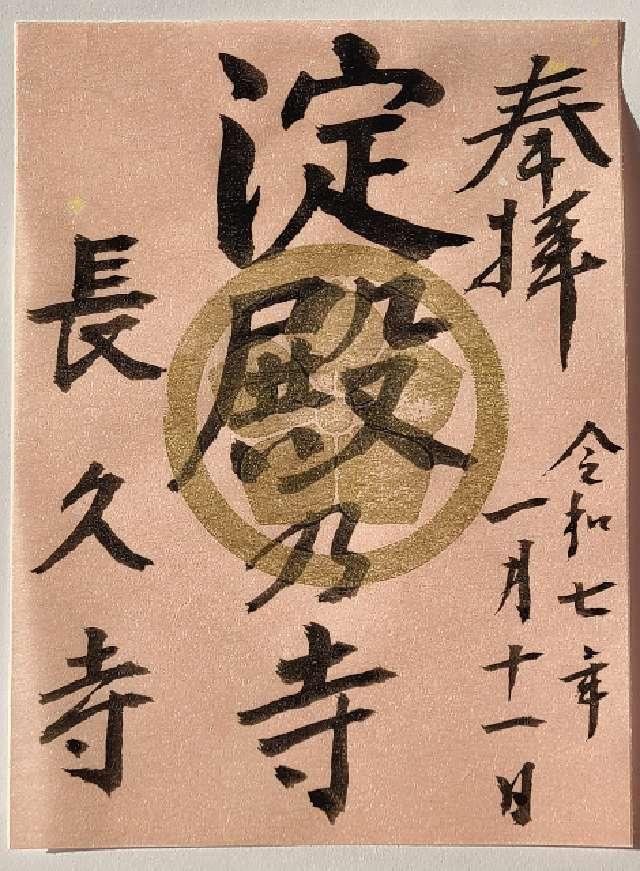 奉拝
令和七年
一月十一日
淀殿乃寺
長久寺